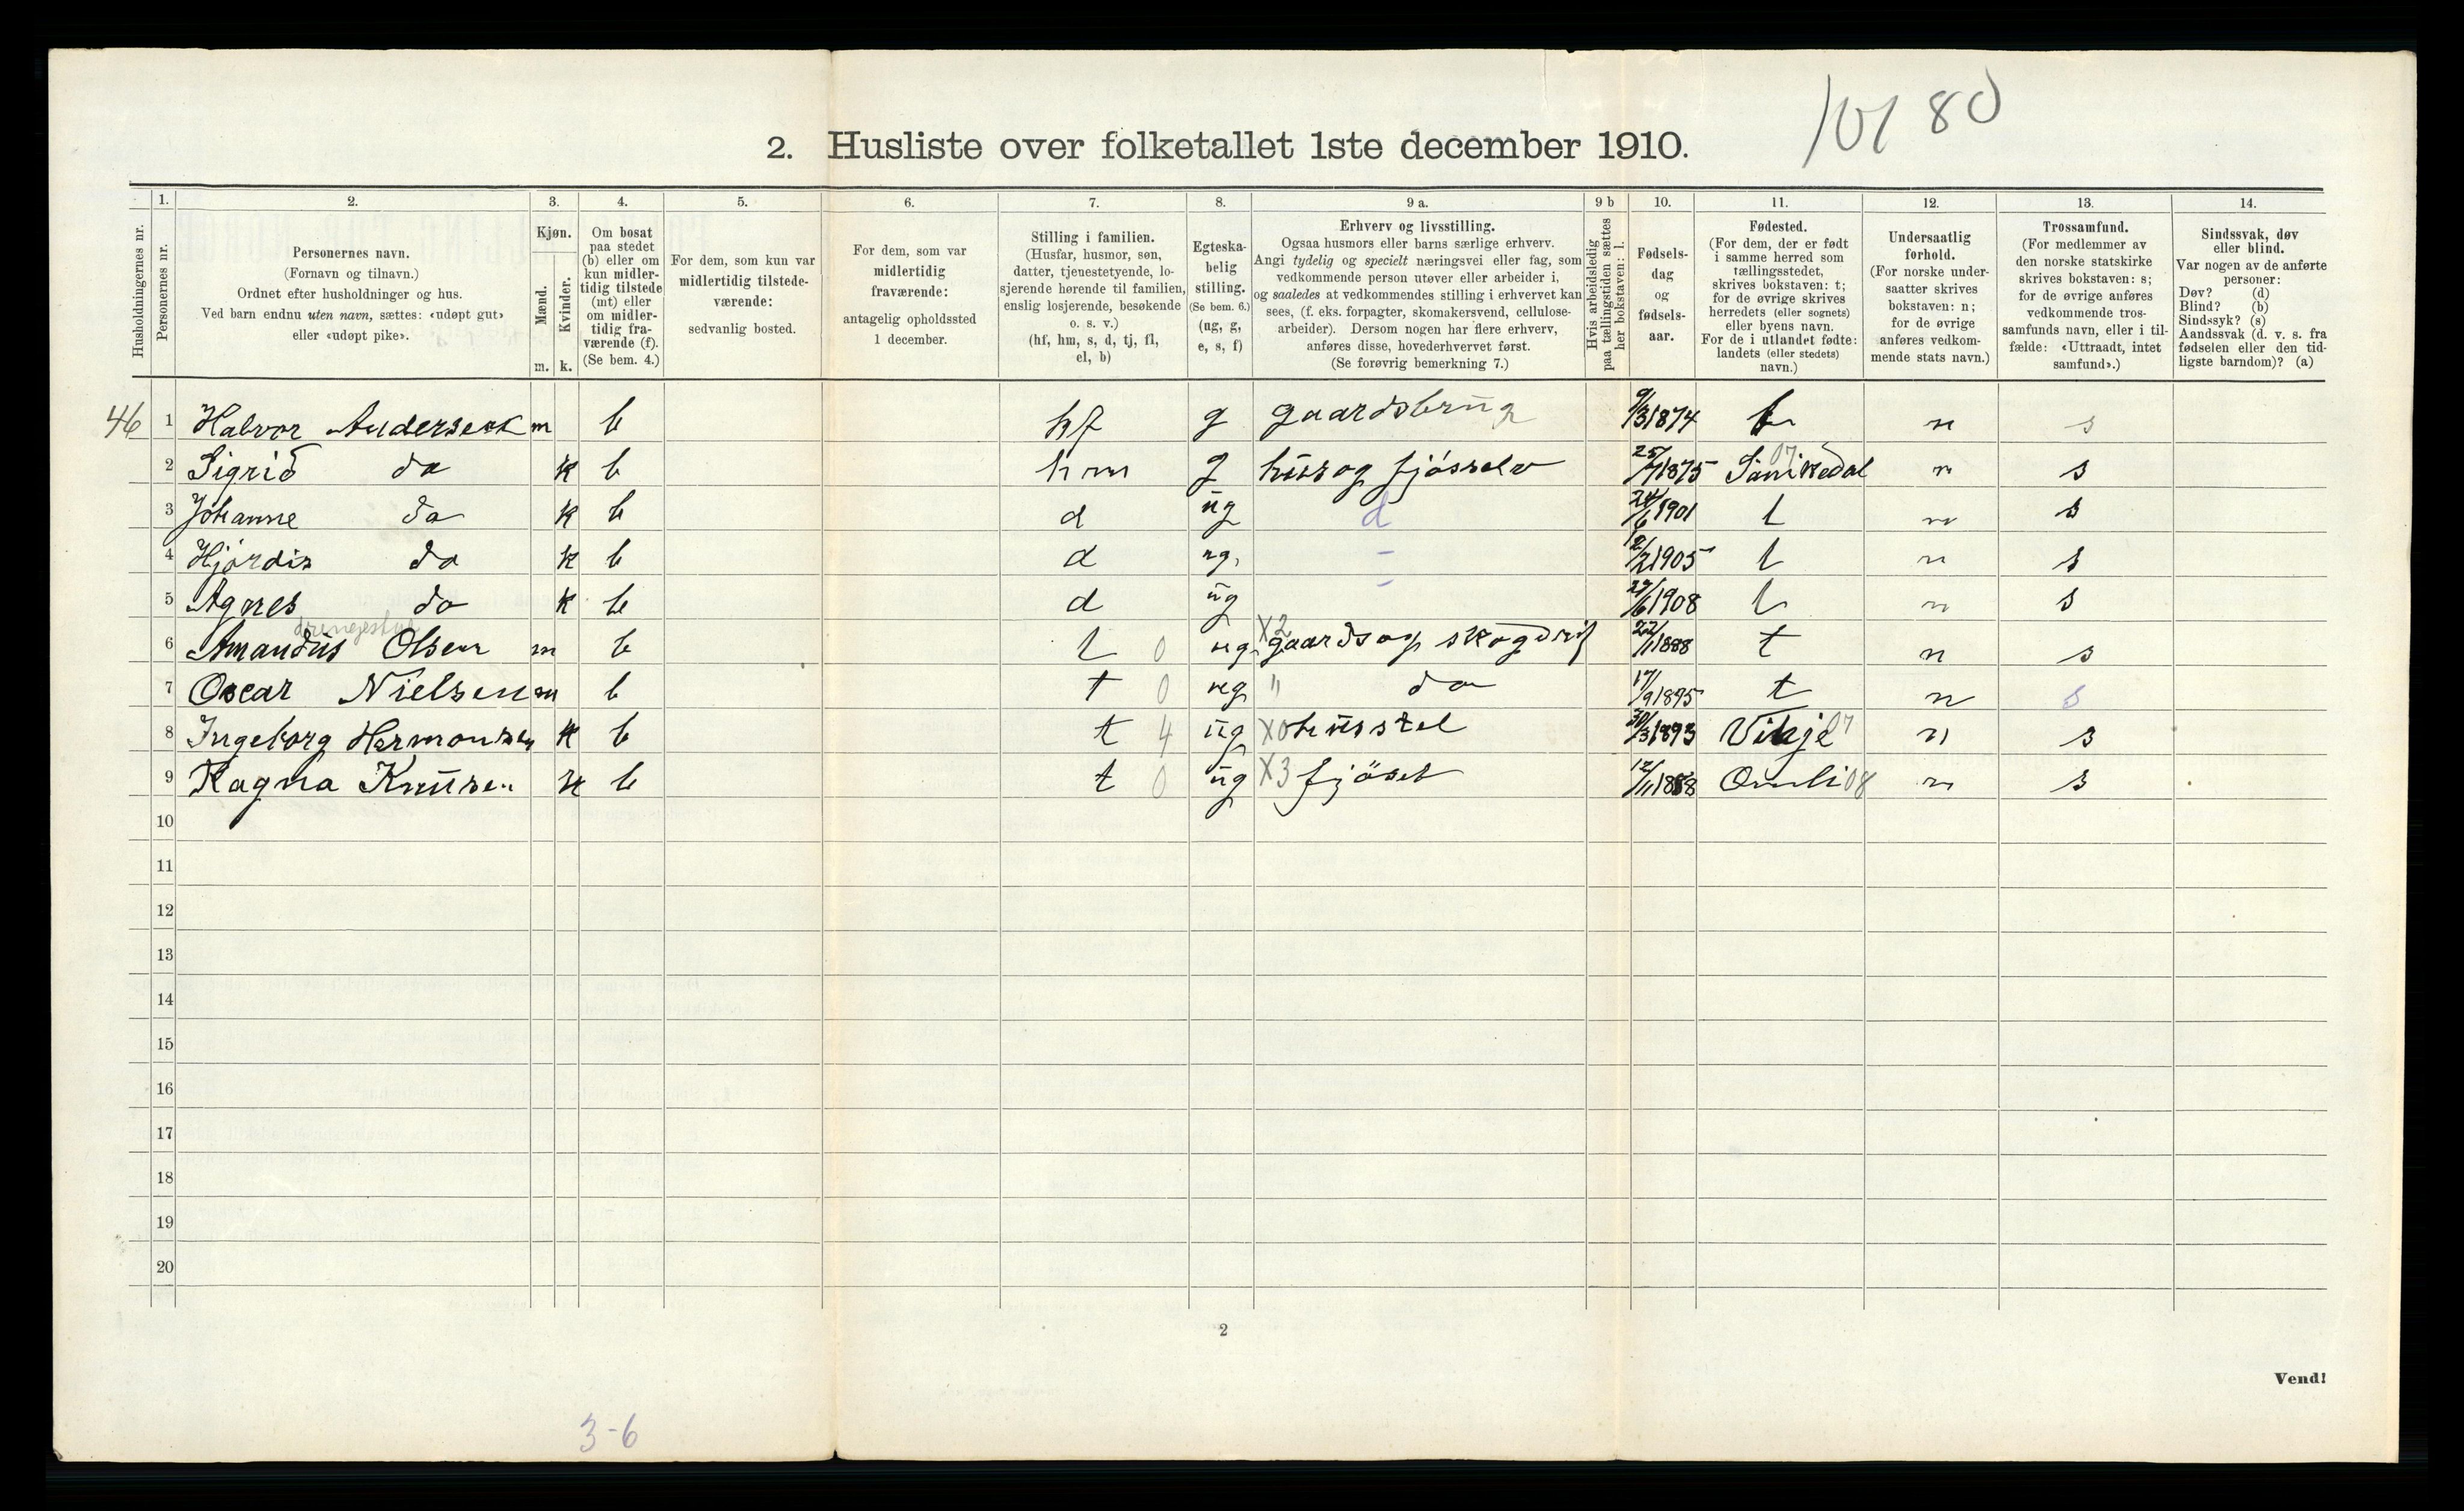 80
2. Husliste over folketallet 1ste december 1910.
1. 2. 3. 4. 5. 6. 7. 8. 9 a. 9 b 10. 11. 12. 13. 14.
Husholdningernes nr.
Personernes nr.
Personernes navn.
(Fornavn og tilnavn.)
Ordnet efter husholdninger og hus.
Ved barn endnu uten navn, sættes: «udøpt gut»
eller «udøpt pike».
Kjøn.
Mænd.
Kvinder.
m. k.
Om bosat
paa stedet
(b) eller om
kun midler-
tidig tilstede
(mt) eller
om midler-
tidig fra-
værende (f).
(Se bem. 4.)
For dem, som kun var
midlertidig tilstede-
værende:
sedvanlig bosted.
For dem, som var
midlertidig
fraværende:
antagelig opholdssted
1 december.
Stilling i familien.
(Husfar, husmor, søn,
datter, tjenestetyende, lo-
sjerende hørende til familien,
enslig losjerende, besøkende
o. s. v.)
(hf, hm, s, d, tj, fl,
el, b)
Egteska-
belig
stilling.
(Se bem. 6.)
(ug, g,
e, s, f)
Erhverv og livsstilling.
Ogsaa husmors eller barns særlige erhverv.
Angi tydelig og specielt næringsvei eller fag, som
vedkommende person utøver eller arbeider i,
og saaledes at vedkommendes stilling i erhvervet kan
sees, (f. eks. forpagter, skomakersvend, cellulose-
arbeider). Dersom nogen har flere erhverv,
anføres disse, hovederhvervet først.
(Se forøvrig bemerkning 7.)
Hvis arbeidsledig
paa tællingstiden sættes
her bokstaven: l.
Fødsels-
dag
og
fødsels-
aar.
Fødested.
(For dem, der er født
i samme herred som
tællingsstedet,
skrives bokstaven: t;
for de øvrige skrives
herredets (eller sognets)
eller byens navn.
For de i utlandet fødte:
landets (eller stedets)
navn.)
Undersaatlig
forhold.
(For norske under-
saatter skrives
bokstaven: n;
for de øvrige
anføres vedkom-
mende stats navn.)
Trossamfund.
(For medlemmer av
den norske statskirke
skrives bokstaven: s;
for de øvrige anføres
vedkommende tros-
samfunds navn, eller i til-
fælde: «Uttraadt, intet
samfund».)
Sindssvak, døv
eller blind.
Var nogen av de anførte
personer:
Døv? (d)
Blind? (b)
Sindssyk? (s)
Aandssvak (d. v. s. fra
fødselen eller den tid-
ligste barndom)? (a)
46 1 Halvor Andersen m b hf g gaardsbrug 9/3 1874 t n s
2 Sigrid do k b hm g hus og fjösselv 1875 07 n s
3 Johanne do k b d ug d 24/6 1901 t n s
4 Hjördis do k b d ug. - 12/2 1905 t n s
5 Agnes do k b d ug - 1908 t n s
6 Amandus Olsen m b t 0 ug. X2 gaards og skogdrif 22/1 1888 t n s
7 Oscar Nielsen m b t 0 ug " do 17/9 1895 t n s
8 Ingeborg Hermonsen k b t 4 ug X0 husstel 30/3 1893 07 n s
9 Ragna Knusen k b t 0 ug X3 fjöset 12/11 1888 Omli 08 n s
10
11
12
13
14
15
16
17
18
19
20
2
Vend!
3-6